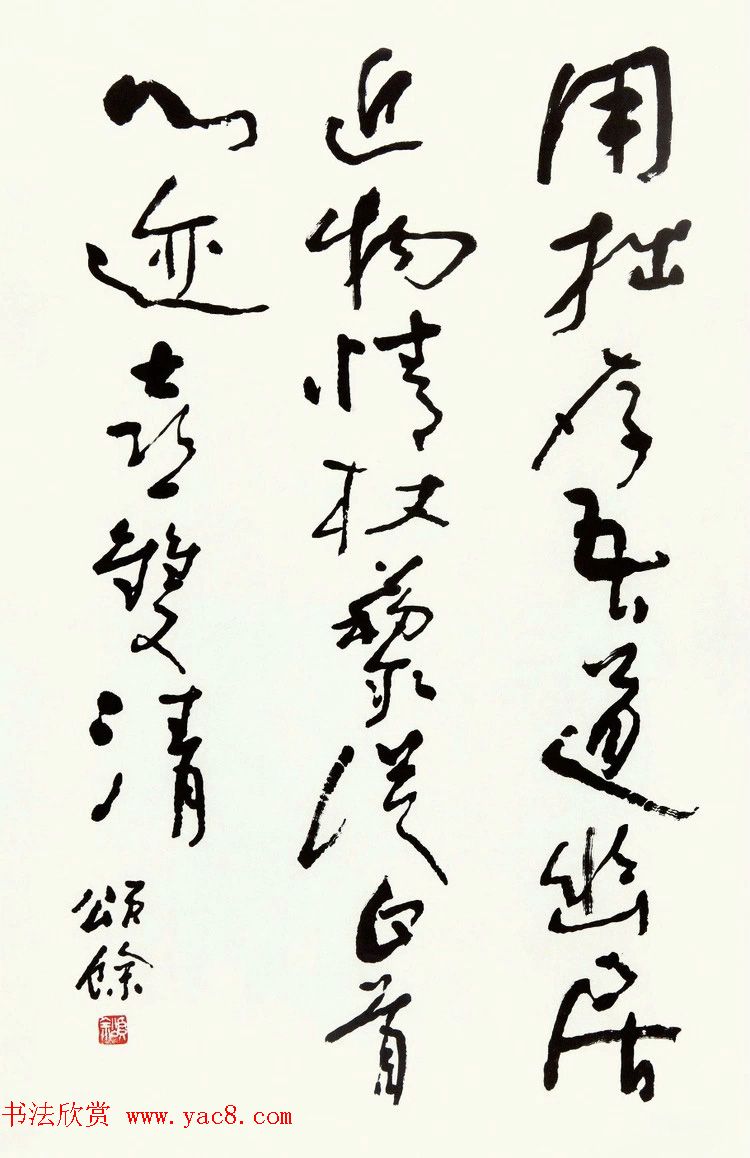 用拙存吾道幽居
近物情杖藜从白首
心迹喜雙清
頌餘
書法欣赏 www.yac8.com